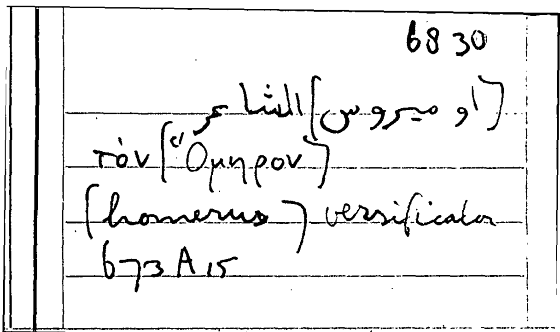 68 30
[اوميروس] الشاعر
τὸν [Ὅμηρον]
[homerus] versificator
673 A 15